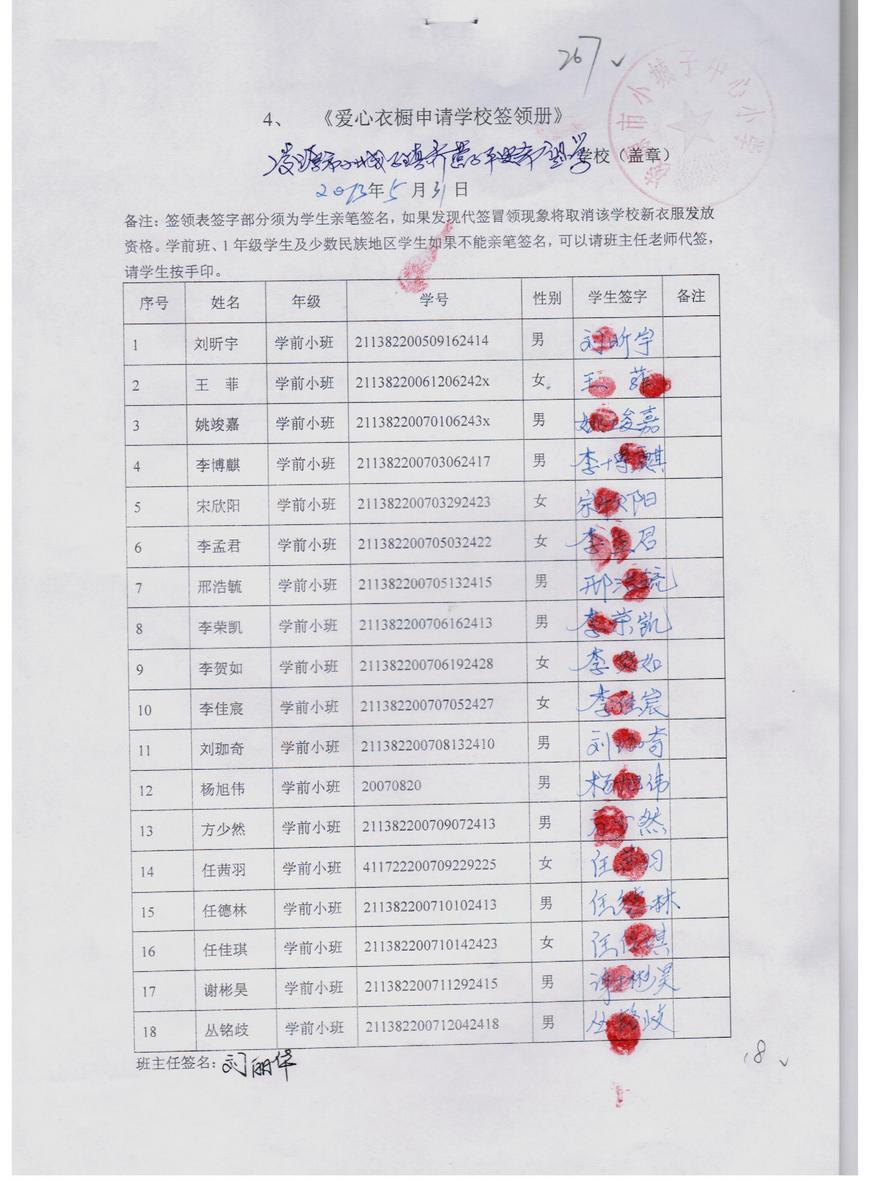 267
凌源市小城子中心小学
4、 《爱心衣橱申请学校签领册》
凌源市小城子镇 学校（盖章）
2013年5月31日
备注：签领表签字部分须为学生亲笔签名，如果发现代签冒领现象将取消该学校新衣服发放
资格。学前班、1年级学生及少数民族地区学生如果不能亲笔签名，可以请班主任老师代签，
请学生按手印。
序号 姓名 年级 学号 性别 学生签字 备注
1 刘昕宇 学前小班 211382200509162414 男 刘昕宇
2 王 菲 学前小班 21138220061206242x 女。 王 菲
3 姚竣嘉 学前小班 21138220070106243x 男 姚竣嘉
4 李博麒 学前小班 211382200703062417 男 李博麒
5 宋欣阳 学前小班 211382200703292423 女 宋欣阳
6 李孟君 学前小班 211382200705032422 女 李孟君
7 邢浩毓 学前小班 211382200705132415 男 邢浩毓
8 李荣凯 学前小班 211382200706162413 男 李荣凯
9 李贺如 学前小班 211382200706192428 女 李贺如
10 李佳宸 学前小班 211382200707052427 女 李佳宸
11 刘珈奇 学前小班 211382200708132410 男 刘珈奇
12 杨旭伟 学前小班 20070820 男 杨旭伟
13 方少然 学前小班 211382200709072413 男 方少然
14 任茜羽 学前小班 411722200709229225 女 任茜羽
15 任德林 学前小班 211382200710102413 男 任德林
16 任佳琪 学前小班 211382200710142423 女 任佳琪
17 谢彬昊 学前小班 211382200711292415 男 谢彬昊
18 丛铭歧 学前小班 211382200712042418 男 丛铭歧
班主任签名：刘丽华
18